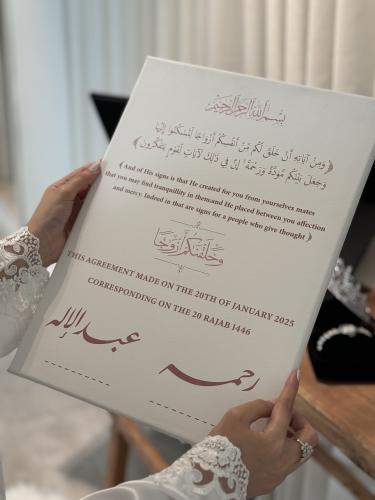 بسم الله الرحمن الرحيم
﴿وَمِنْ آيَاتِهِ أَنْ خَلَقَ لَكُم مِّنْ أَنفُسِكُمْ أَزْوَاجًا لِّتَسْكُنُوا إِلَيْهَا
وَجَعَلَ بَيْنَكُم مَّوَدَّةً وَرَحْمَةً إِنَّ فِي ذَلِكَ لَآيَاتٍ لِّقَوْمٍ يَتَفَكَّرُونَ﴾
﴾And of His signs is that He created for you from yourselves mates
that you may find tranquillity in themand He placed between you affection
and mercy. Indeed in that are signs for a people who give thought﴿
وخلقنكم أزوجا
THIS AGREEMENT MADE ON THE 20TH OF JANUARY 2025
CORRESPONDING ON THE 20 RAJAB 1446
رحمه
عبدالإله